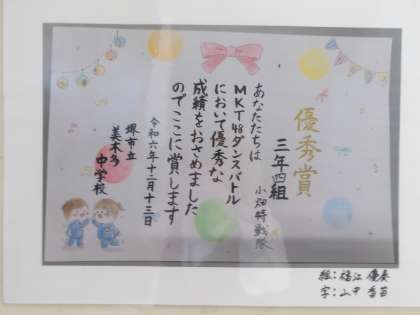 優秀賞
三年四組
小畑特戦隊
あなたたちは
MKT48ダンスバトル
において優秀な
成績をおさめました
のでここに賞します
令和六年十二月十三日
堺市立
美木多
中学校
絵:福江 優奏
字:山中 香苗